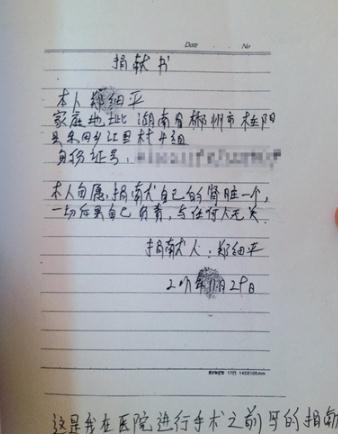 Date No
捐献书
本人 郑细平
家庭地址 湖南省郴州市桂阳
县
身份证号:
本人自愿捐献自己的肾脏一个,
一切后果自己负责,与任何人无关
捐献人:郑细平
29日
这是我在医院进行手术之前写的捐献